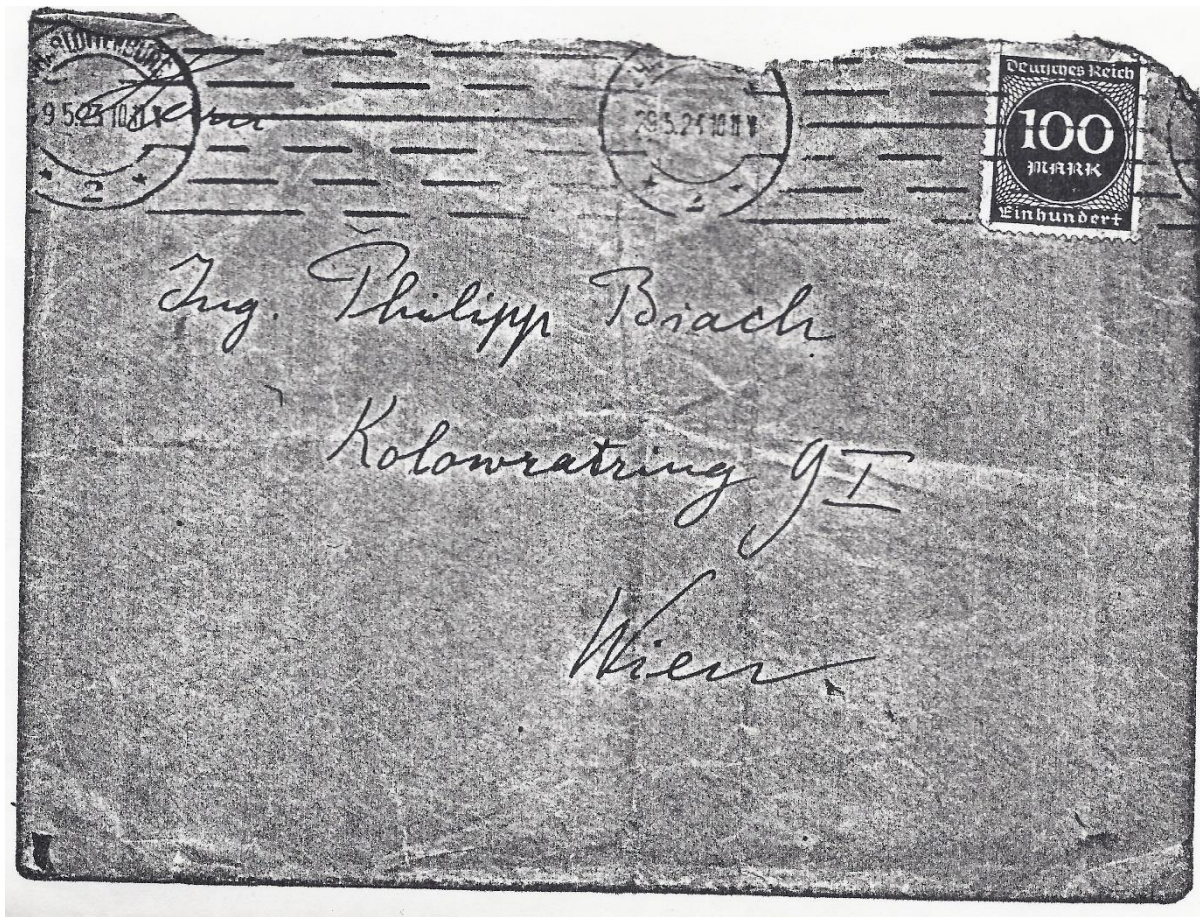 CHARLOTTENBURG
9.5.23 10-11 V
* 2 *
Herrn
29.5.23 10-11 V
* 2 *
Deutsches Reich
100
MARK
Einhundert
Ing. Philipp Biach
Kolowratring 9 I
Wien.